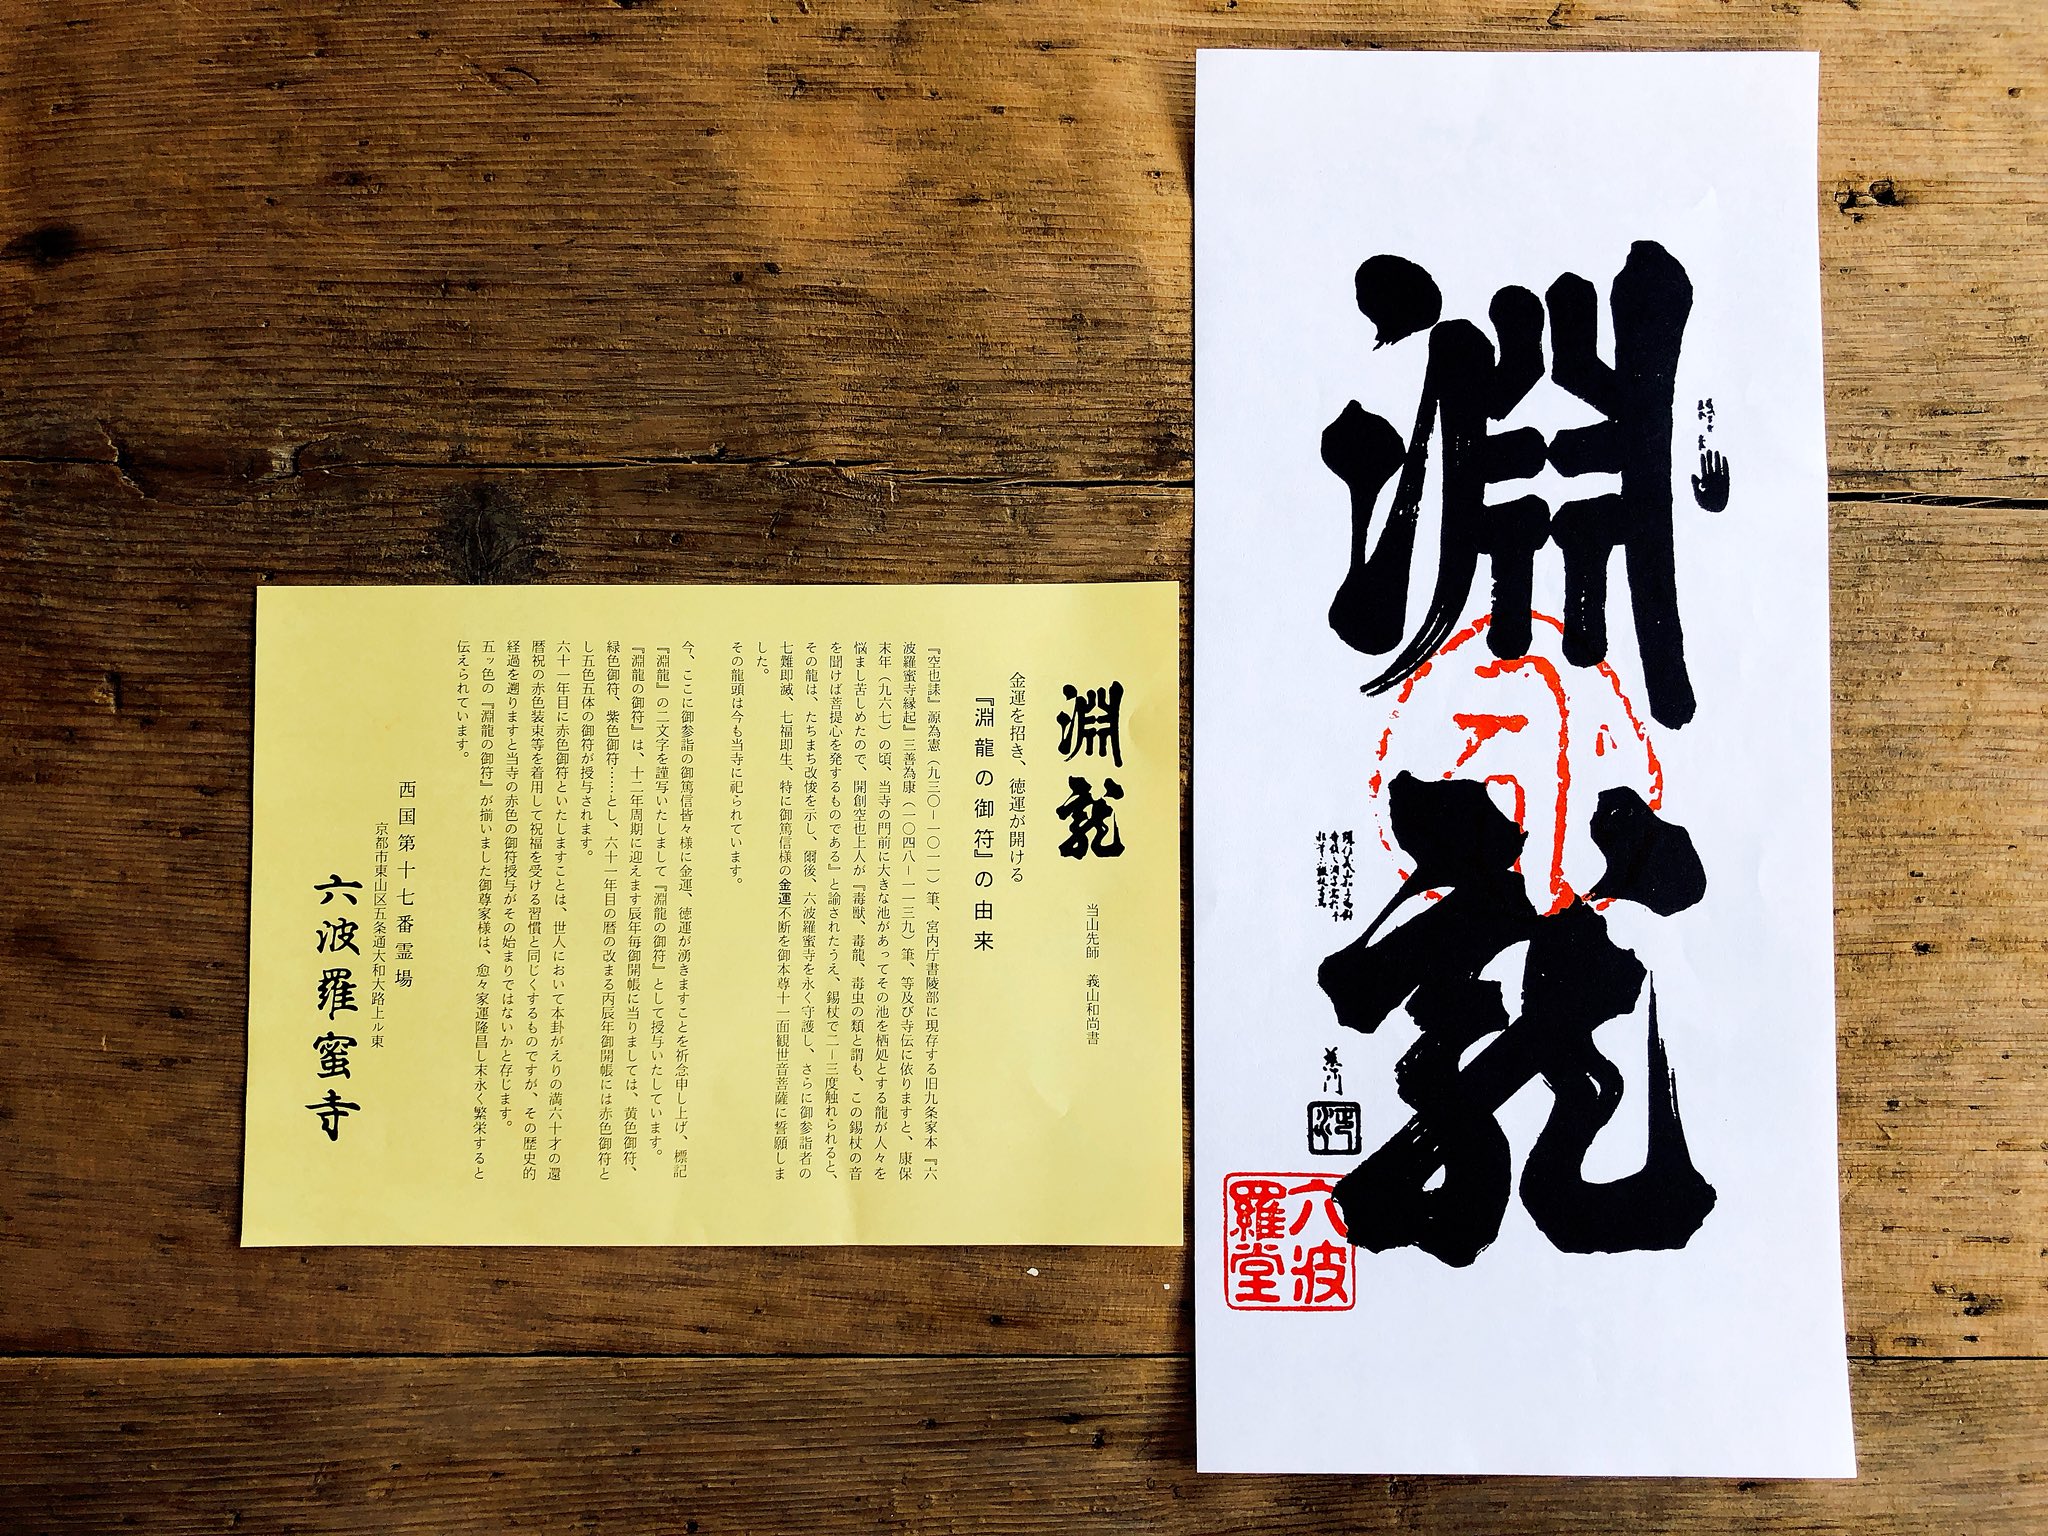 淵龍
六波
羅堂
淵龍
当山先師　義山和尚書
金運を招き、徳運が開ける
『淵龍の御符』の由来
『空也誄』源為憲（九三〇－一〇一一）筆、宮内庁書陵部に現存する旧九条家本『六
波羅蜜寺縁起』三善為康（一〇四八－一一三九）筆、等及び寺伝に依りますと、康保
末年（九六七）の頃、当寺の門前に大きな池があってその池を栖処とする龍が人々を
悩まし苦しめたので、開創空也上人が『毒獣、毒龍、毒虫の類と謂も、この錫杖の音
を聞けば菩提心を発するものである』と諭されたうえ、錫杖で二－三度触れられると、
その龍は、たちまち改悛を示し、爾後、六波羅蜜寺を永く守護し、さらに御参詣者の
七難即滅、七福即生、特に御篤信様の金運不断を御本尊十一面観世音菩薩に誓願しま
した。
その龍頭は今も当寺に祀られています。
今、ここに御参詣の御篤信皆々様に金運、徳運が湧きますことを祈念申し上げ、標記
『淵龍』の二文字を謹写いたしまして『淵龍の御符』として授与いたしています。
『淵龍の御符』は、十二年周期に迎えます辰年毎御開帳に当りましては、黄色御符、
緑色御符、紫色御符……とし、六十一年目の暦の改まる丙辰年御開帳には赤色御符と
し五色五体の御符が授与されます。
六十一年目に赤色御符といたしますことは、世人において本卦がえりの満六十才の還
暦祝の赤色装束等を着用して祝福を受ける習慣と同じくするものですが、その歴史的
経過を遡りますと当寺の赤色の御符授与がその始まりではないかと存じます。
五ッ色の『淵龍の御符』が揃いました御尊家様は、愈々家運隆昌し末永く繁栄すると
伝えられています。
西国第十七番霊場
京都市東山区五条通大和大路上ル東
六波羅蜜寺